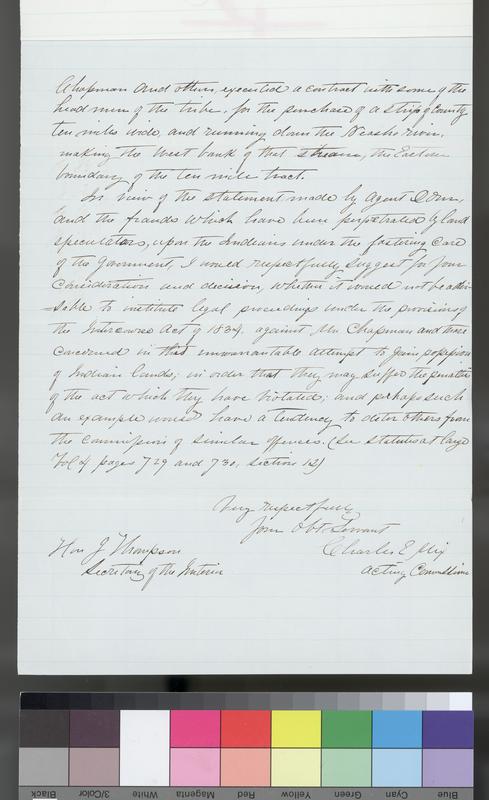 Chapman and others, executed a contract with some of the
head men of the tribe, for the purchase of a strip of County
ten miles wide, and running down the Neosho river,
making the West bank of that stream, the Eastern
boundary of the ten mile tract.
In view of the statement made by Agent Dorn,
and the frauds which have been perpetrated by land
speculators, upon the Indians under the fostering care
of the Government, I would respectfully suggest for your
consideration and decision, whether it would not be advi-
sable to institute legal proceedings under the provisions of
the Intercourse Act of 1834, against Mr Chapman and those
concerned in this unwarrantable attempt to gain possession
of Indian lands; in order that they may suffer the penalties
of the act which they have violated; and perhaps such
an example would have a tendency to deter others from
the commission of similar offences. (See statutes at large
Vol 4 pages 729 and 730, section 12)
Very respectfully
Your Obt Servant
Charles E Mix
Acting Commissioner
Hon J Thompson
Secretary of the Interior
Black
3/Color
White
Magenta
Red
Yellow
Green
Cyan
Blue